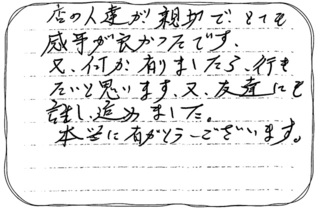 店の人達が親切で とても
感等が良かったです、
又、何か有りましたら、行き
たいと思います、又、友達にも
話し、進めました。
本当に有がとうーございます。